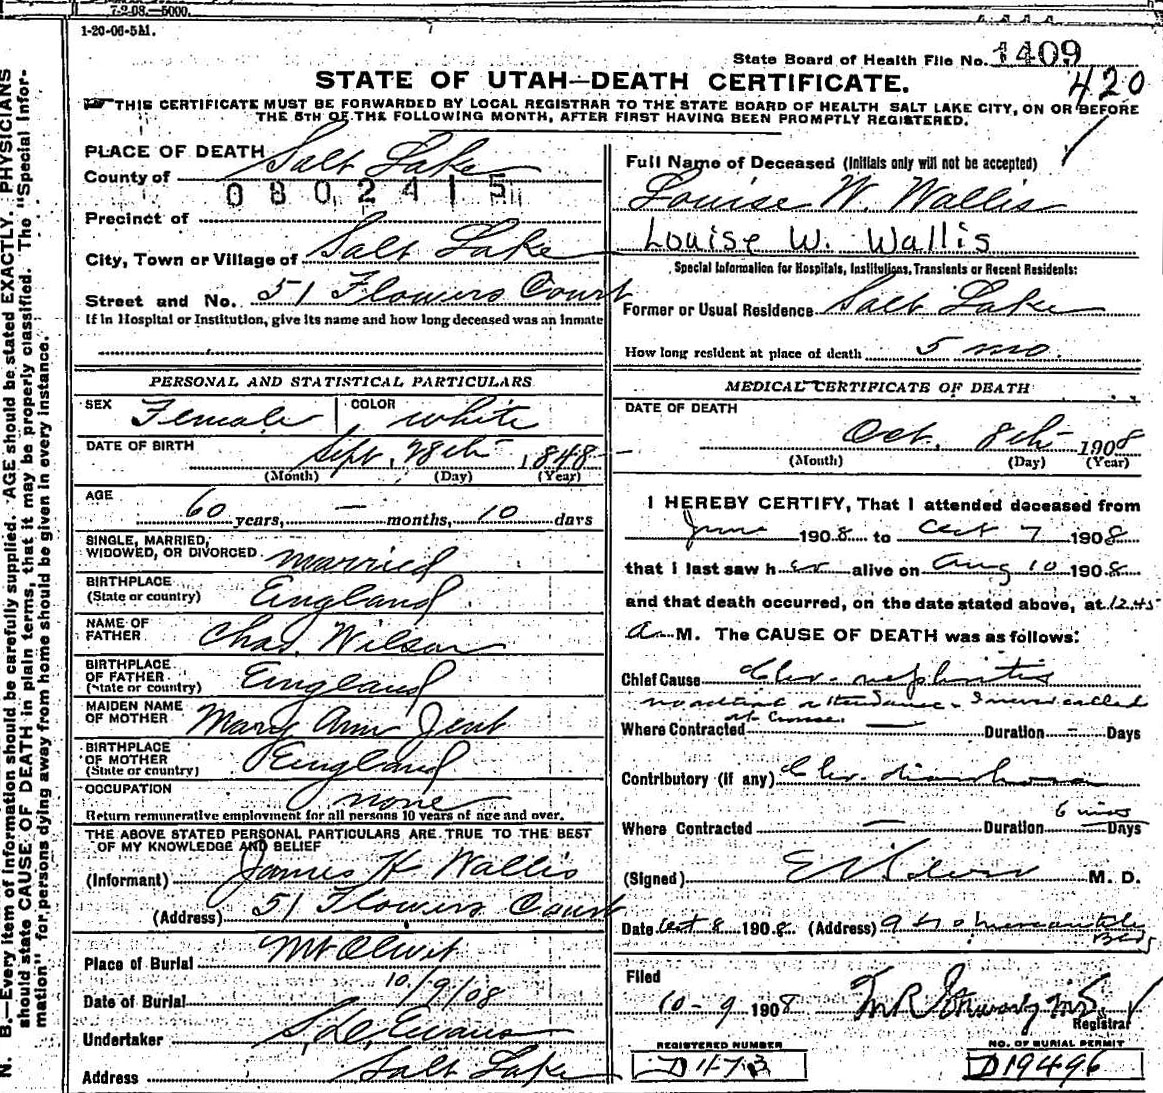 7-2-08.—5000.
1-20-06-5M.
State Board of Health File No. 1409
STATE OF UTAH—DEATH CERTIFICATE.
420
THIS CERTIFICATE MUST BE FORWARDED BY LOCAL REGISTRAR TO THE STATE BOARD OF HEALTH SALT LAKE CITY, ON OR BEFORE
THE 5TH OF THE FOLLOWING MONTH, AFTER FIRST HAVING BEEN PROMPTLY REGISTERED.
PLACE OF DEATH
County of Salt Lake
0802415
Precinct of
City, Town or Village of Salt Lake
Street and No. 51 Flowers Court
If in Hospital or Institution, give its name and how long deceased was an inmate
Full Name of Deceased (Initials only will not be accepted)
Louise W. Wallis
Louise W. Wallis
Special Information for Hospitals, Institutions, Transients or Recent Residents:
Former or Usual Residence Salt Lake
How long resident at place of death 5 mo.
PERSONAL AND STATISTICAL PARTICULARS
SEX Female COLOR white
DATE OF BIRTH Sept. 28th 1848
(Month) (Day) (Year)
AGE
60 years, — months, 10 days
SINGLE, MARRIED,
WIDOWED, OR DIVORCED married
BIRTHPLACE
(State or country) England
NAME OF
FATHER Chas. Wilson
BIRTHPLACE
OF FATHER
(State or country) England
MAIDEN NAME
OF MOTHER Mary Ann Jent
BIRTHPLACE
OF MOTHER
(State or country) England
OCCUPATION none
Return remunerative employment for all persons 10 years of age and over.
THE ABOVE STATED PERSONAL PARTICULARS ARE TRUE TO THE BEST
OF MY KNOWLEDGE AND BELIEF
(Informant) James H Wallis
(Address) 51 Flowers Court
Place of Burial Mt Olivet
Date of Burial 10/9/08
Undertaker S. D. Evans
Address Salt Lake
MEDICAL CERTIFICATE OF DEATH
DATE OF DEATH
Oct. 8th 1908
(Month) (Day) (Year)
I HEREBY CERTIFY, That I attended deceased from
June 1908 to Oct 7 1908
that I last saw her alive on Aug 10 1908
and that death occurred, on the date stated above, at 12.45
A M. The CAUSE OF DEATH was as follows:
Chief Cause Chr. nephritis
no attendance
Where Contracted — Duration — Days
Contributory (if any) Chr. diarrhoea
6 mos
Where Contracted — Duration Days
(Signed) M. D.
Date Oct 8 1908 (Address) Mercantile
Bldg
Filed
10-9 1908
Registrar
REGISTERED NUMBER
D 1173
NO. OF BURIAL PERMIT
D19496
N. B.—Every item of information should be carefully supplied. AGE should be stated EXACTLY. PHYSICIANS
should state CAUSE OF DEATH in plain terms, that it may be properly classified. The "Special Infor-
mation" for persons dying away from home should be given in every instance.